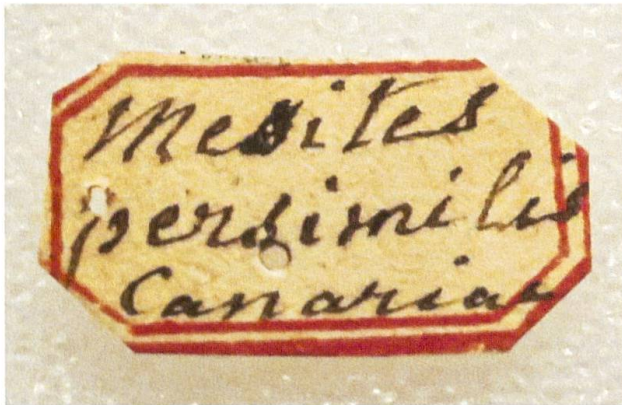 Mesites
persimilis
Canariae